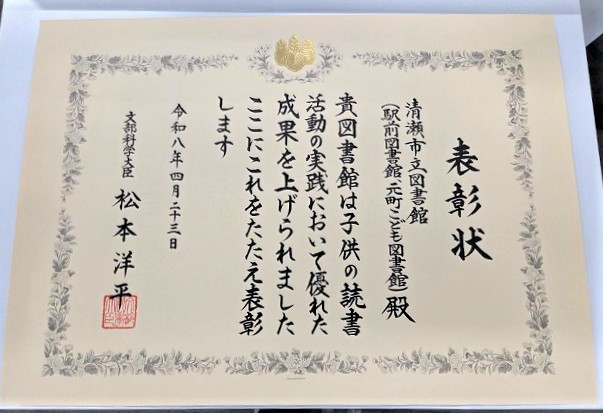 表彰状
清瀬市立図書館
(駅前図書館、元町こども図書館)殿
貴図書館は子供の読書
活動の実践において優れた
成果を上げられました
ここにこれをたたえ表彰
します
令和八年四月二十三日
文部科学大臣 松本洋平